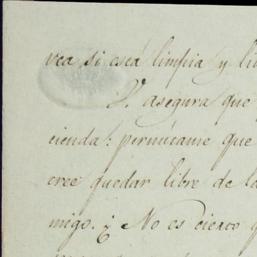 vea si está limpia y li
V. asegura que
cienda: permítame que
cree quedar libre de la
migo. ¿No es cierto q